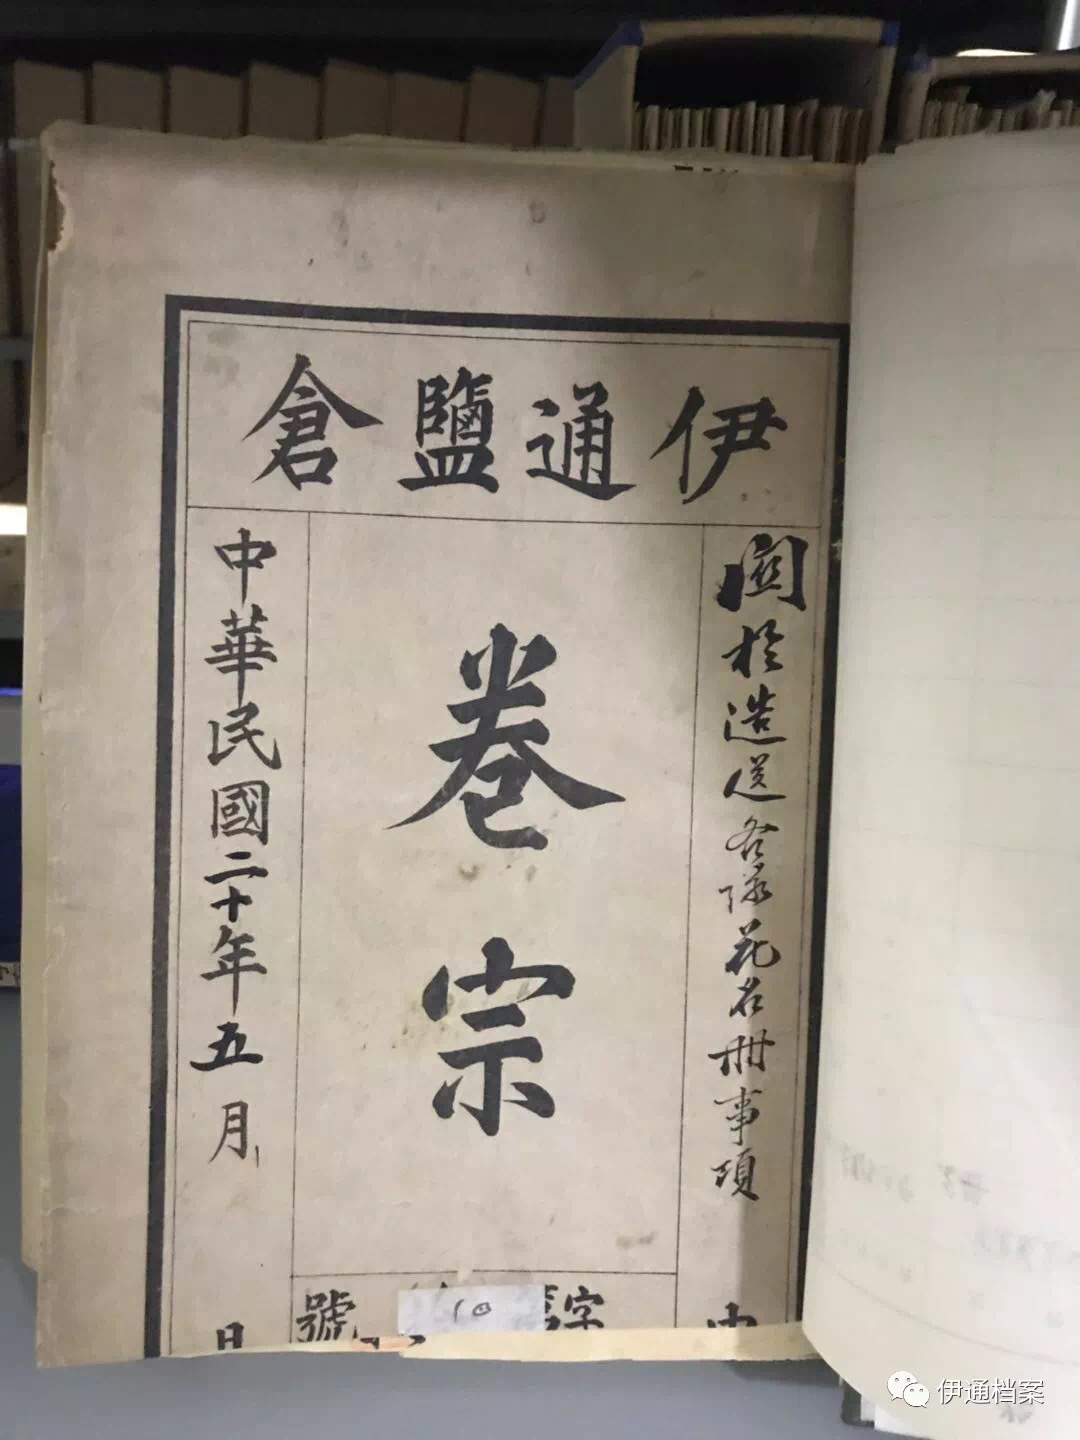 伊通鹽倉
關於造送各隊花名册事項
卷宗
中華民國二十年五月
字
號
10
伊通档案